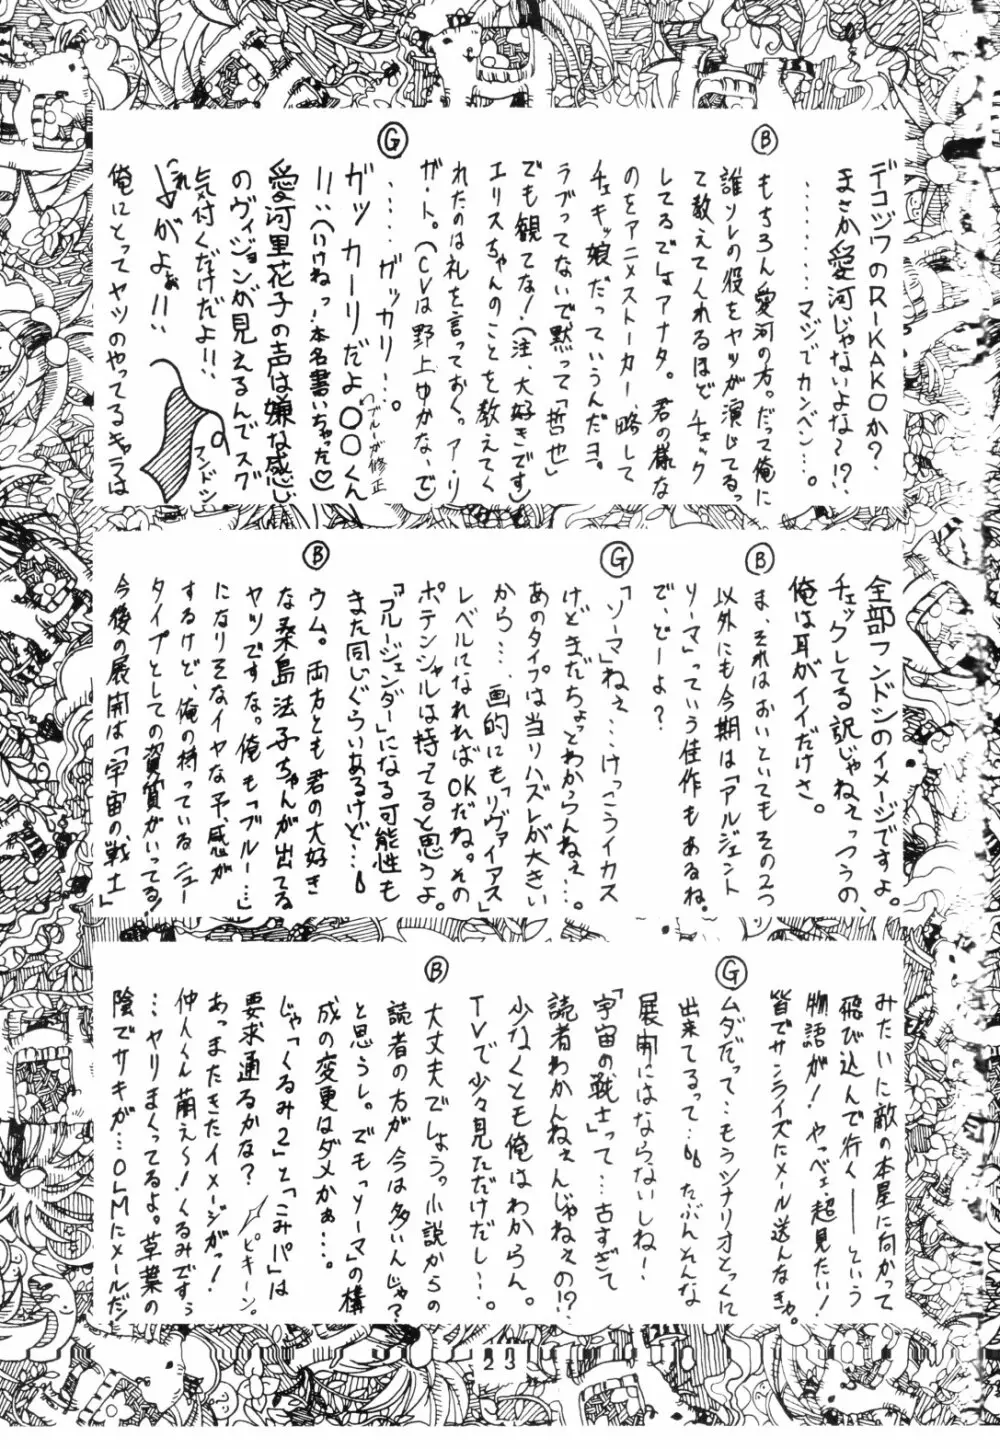 デコジワのR-KAKOか?
まさか愛河じゃないよな?!?
………マジでカンベン…。
Ⓑ もちろん愛河の方。だって俺に
誰ソレの役をヤツが演じてるっ
て教えてくれるほどチェック
してるでしょアナタ。君の様な
のをアニメストーカー、略して
チェキッ娘だっていうんだヨ。
ラブってないで黙って「哲也」
でも観てな!(注、大好きです)
エリスちゃんのことを教えてく
れたのは礼を言っておく。ア・リ
ガ・ト。(CVは野上ゆかな、で)
Ⓖ ……ガッカリ…。
ガッカーリだよ○○くん
へブルーが修正
!!、(いけねっ!本名書いちゃった♡)
愛河里花子の声は嫌な感じ
のヴィジョンが見えるんでスグ
気付くだけだよ!!
アンドシ
これ
がよぉ!!
俺にとってヤツのやってるキャラは
全部フンドシのイメージですよ。
チェックしてる訳じゃねぇっつうの、
俺は耳がイイだけさ。
Ⓑ ま、それはおいといてもその2つ
以外にも今期は「アルジェント
ソーマ」っていう佳作もあるね。
で、どーよ?
Ⓖ 「ソーマ」ねぇ…けっこうイカス
けどまだちょっとわからんねぇ…。
あのタイプは当りハズレが大きい
から…、画的にも「リヴァイアス」
レベルになれればOKだね。その
ポテンシャルは持ってると思うよ。
「ブルージェンダー」になる可能性も
また同じぐらいあるけど…。
Ⓑ ウム。両方とも君の大好き
な桑島法子ちゃんが出てる
ヤツですな。俺も「ブルー…」
になりそなイヤな予感が
するけど、俺の持っているニュー
タイプとしての資質がいってる!
今後の展開は「宇宙の戦士」
みたいに敵の本星に向かって
飛び込んで行く――という
物語が!やっべェ超見たい!
皆でサンライズにメール送んなきゃ。
Ⓖ ムダだって…もうシナリオとっくに
出来てるって…。たぶんそんな
展開にはならないしね。
「宇宙の戦士」って…古すぎて
読者わかんねぇんじゃねぇの!?
少なくとも俺はわからん。
TVで少々見ただけだし…。
Ⓑ 大丈夫でしょう。小説からの
読者の方が今は多いんじゃ?
と思うし。でも「ソーマ」の構
成の変更はダメかぁ…。
じゃ「くるみ2」と「こみパ」は
要求通るかな?
ピキーン。
あっまたきたイメージがっ!
仲人くん萌え〜!くるみですぅ
…ヤリまくってるよ。草葉の
陰でサキが…OLMにメールだ!
23